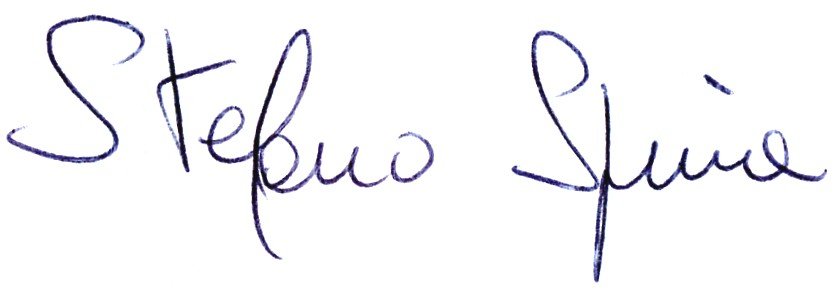 Stefano Spina